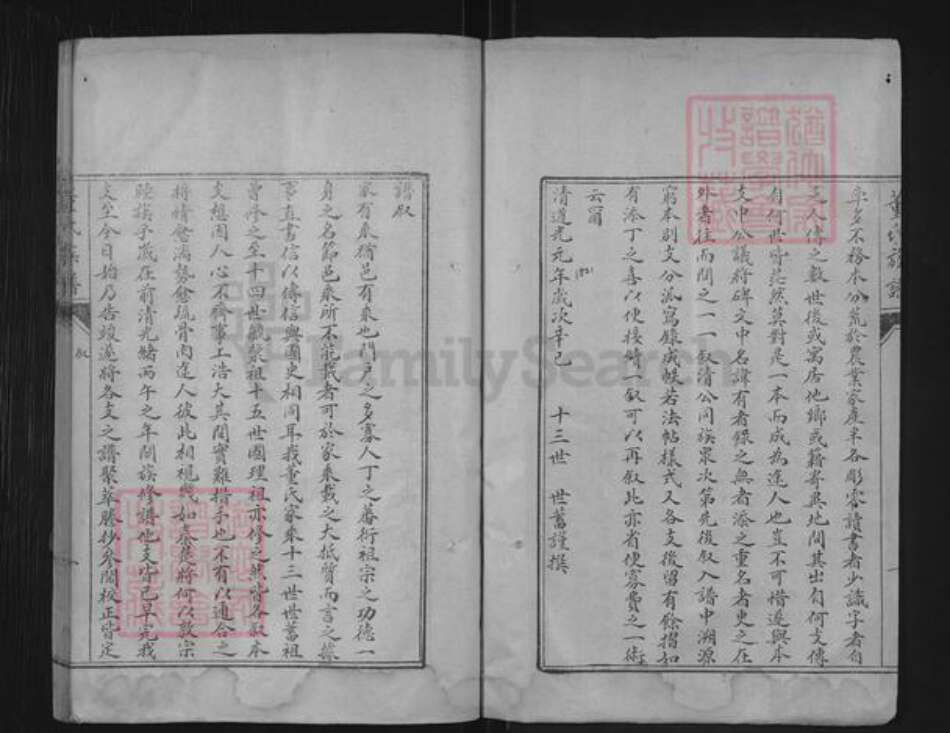 董氏族譜
卑名不務本分荒於農業家產半各彫零讀書者少識字者自
支人傳之數世後或寓居他鄉或籍寄異地問其出自何支傳
自何世皆茫然莫對是一本而成為途人也豈不可惜遂與本
支中公議將碑文中名諱有者錄之無者添之重名者更之在
外者往而問之一一叙清公同族眾次第先後叙入譜中溯源
窮本別支分派寫錄成帙若法帖樣式又各支後留有餘摺如
有添丁之喜以便接續一叙可以再叙此亦省便寡費之一術
云爾
清道光元年歲次辛巳 十三世 世蓄謹撰
譜叙
家有乘猶邑有乘也門戶之多寡人丁之蕃衍祖宗之功德一
身之名節邑乘所不能載者可於家乘載之大抵質而言之據
事直書信以傳信與國史相同耳我董氏家乘十三世世蓄祖
曾修之至十四世毓繁祖十五世國理祖亦修之然皆各叙本
支想因人心不齊事工浩大其間實難措手也不有以通合之
將情愈渙勢愈疏骨肉途人彼此相視幾如秦越將何以敦宗
睦族乎歲在前清光緒丙午之年闔族修譜他支皆已早完我
支至今日始乃告竣遂將各支之譜聚萃謄抄參閱校正皆定
董氏族譜
叙
FamilySearch